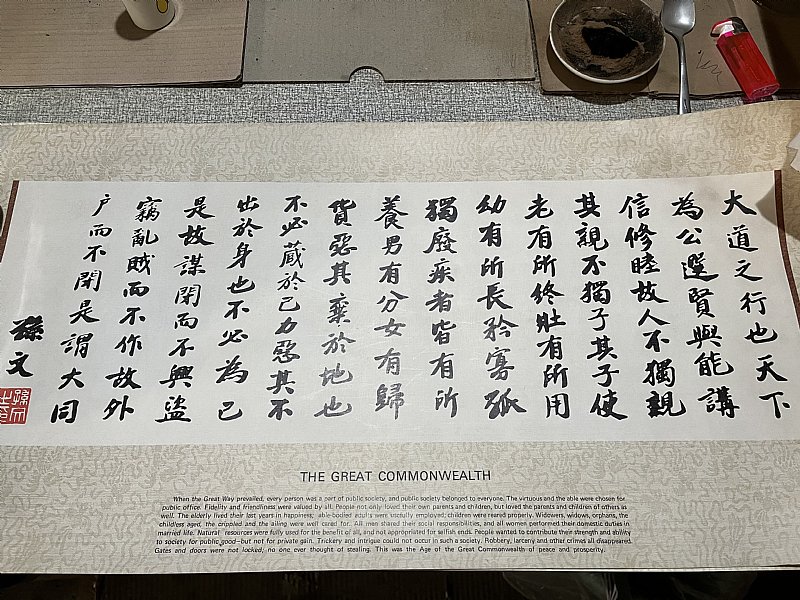 大道之行也天下
為公選賢與能講
信修睦故人不獨親
其親不獨子其子使
老有所終壯有所用
幼有所長矜寡孤
獨廢疾者皆有所
養男有分女有歸
貨惡其棄於地也
不必藏於己力惡其不
出於身也不必為己
是故謀閉而不興盜
竊亂賊而不作故外
户而不閉是謂大同
孫文
孫文之印
THE GREAT COMMONWEALTH
When the Great Way prevailed, every person was a part of public society, and public society belonged to everyone. The virtuous and the able were chosen for
public office. Fidelity and friendliness were valued by all. People not only loved their own parents and children, but loved the parents and children of others as
well. The elderly lived their last years in happiness; able-bodied adults were usefully employed; children were reared properly. Widowers, widows, orphans, the
childless aged, the crippled and the ailing were well cared for. All men shared their social responsibilities, and all women performed their domestic duties in
married life. Natural resources were fully used for the benefit of all, and not appropriated for selfish ends. People wanted to contribute their strength and ability
to society for public good—but not for private gain. Trickery and intrigue could not occur in such a society. Robbery, larceny and other crimes all disappeared.
Gates and doors were not locked; no one ever thought of stealing. This was the Age of the Great Commonwealth of peace and prosperity.